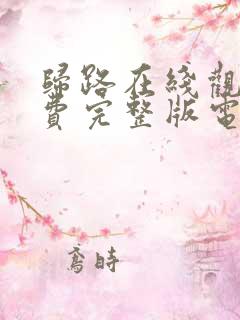 歸路在綫觀
費完整版電
鳶時